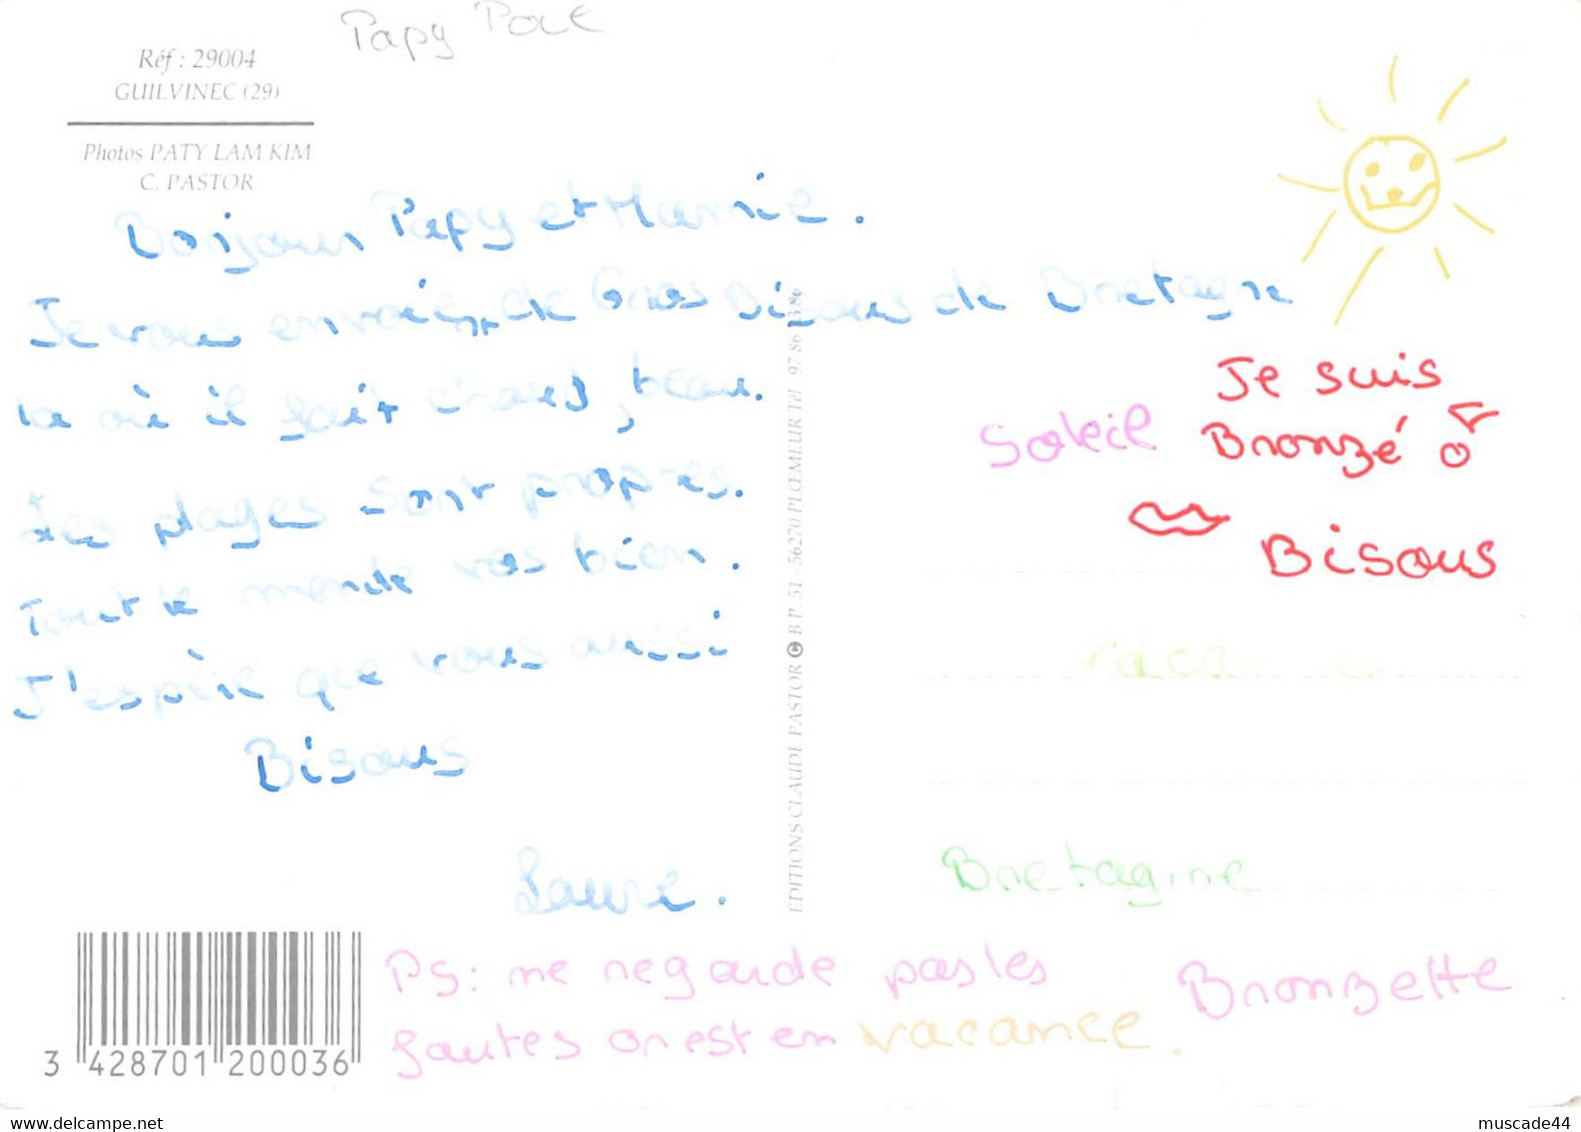 Papy
Réf : 29004
GUILVINEC (29)
Photos PATY LAM KIM
C. PASTOR
Bonjour Papy et Mamie.
Je vous envoie de Gros Bisous de Bretagne
la où il fait chaud, beau.
Les plages sont propres.
Tout le monde vas bien.
J'espère que vous aussi
Bisous
Laure.
PS: ne regarde pas les
fautes on est en vacance.
3 428701 200036
EDITIONS CLAUDE PASTOR © B.P. 51 - 56270 PLŒMEUR Tél 97 86
Je suis
Soleil Bronzé
Bisous
Bretagne
Bronzette
muscade44